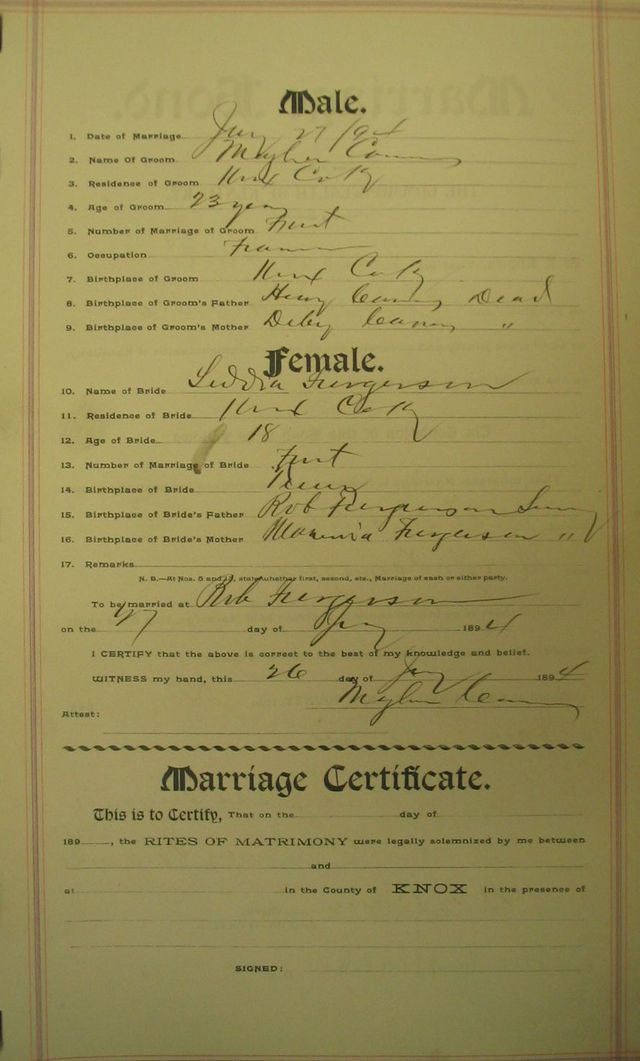 Male.
1. Date of Marriage 27/94
2. Name Of Groom
3. Residence of Groom Knox Co Ky
4. Age of Groom 23 years
5. Number of Marriage of Groom First
6. Occupation Farmer
7. Birthplace of Groom Knox Co Ky
8. Birthplace of Groom's Father Henry Dead
9. Birthplace of Groom's Mother "
Female.
10. Name of Bride Liddia Furgerson
11. Residence of Bride Knox Co Ky
12. Age of Bride 18
13. Number of Marriage of Bride First
14. Birthplace of Bride
15. Birthplace of Bride's Father Rob Furgerson
16. Birthplace of Bride's Mother Furgerson "
17. Remarks
N. B.—At Nos. 5 and 13, state whether first, second, etc., Marriage of each or either party.
To be married at Rob Furgerson
on the 27 day of 1894
I CERTIFY that the above is correct to the best of my knowledge and belief.
WITNESS my hand, this 26 day of 1894
Attest:
Marriage Certificate.
This is to Certify, That on the day of
189 , the RITES OF MATRIMONY were legally solemnized by me between
and
at in the County of KNOX in the presence of
SIGNED: